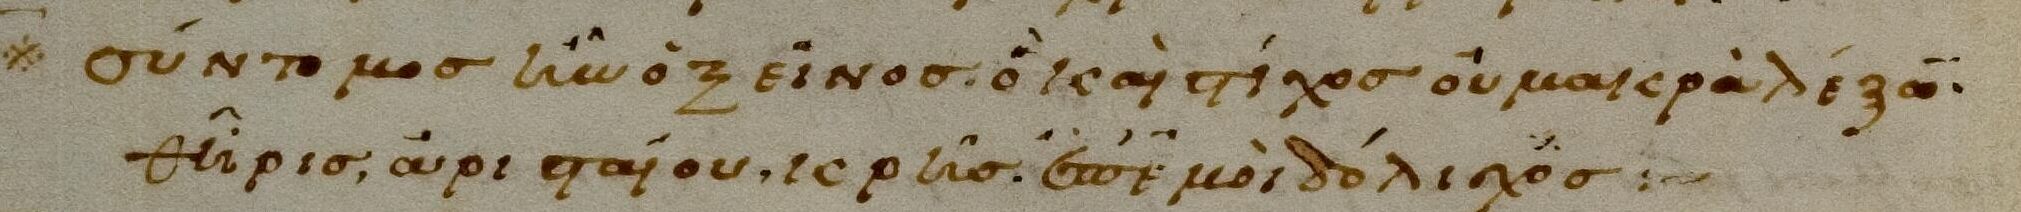 ※ σύντομος ἦν ὁ ξεῖνος· ὃ καὶ στίχος οὐ μακρὰ λέξων·
θῆρις, ἀρισταίου, κρής. ὑπ' ἐμοὶ δόλιχος :~